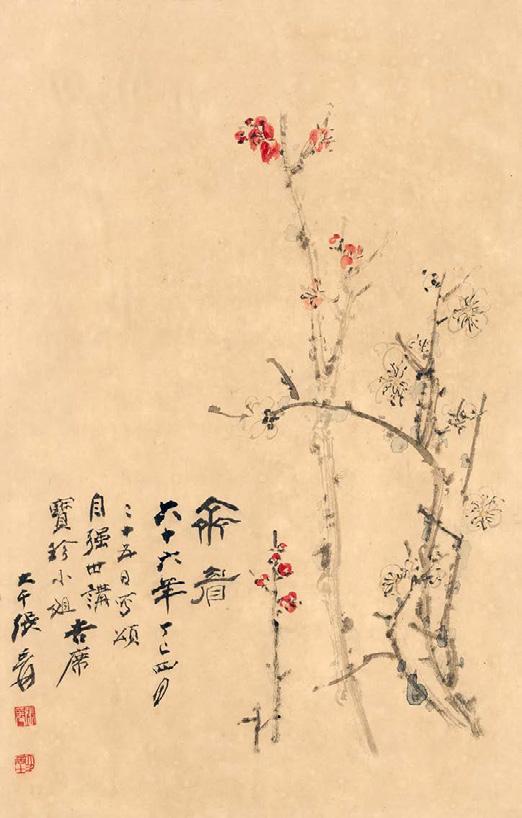 齊眉
六十六年丁巳四月
二十五日寫頌
自強世講
寶珍小姐
吉席
大千張爰